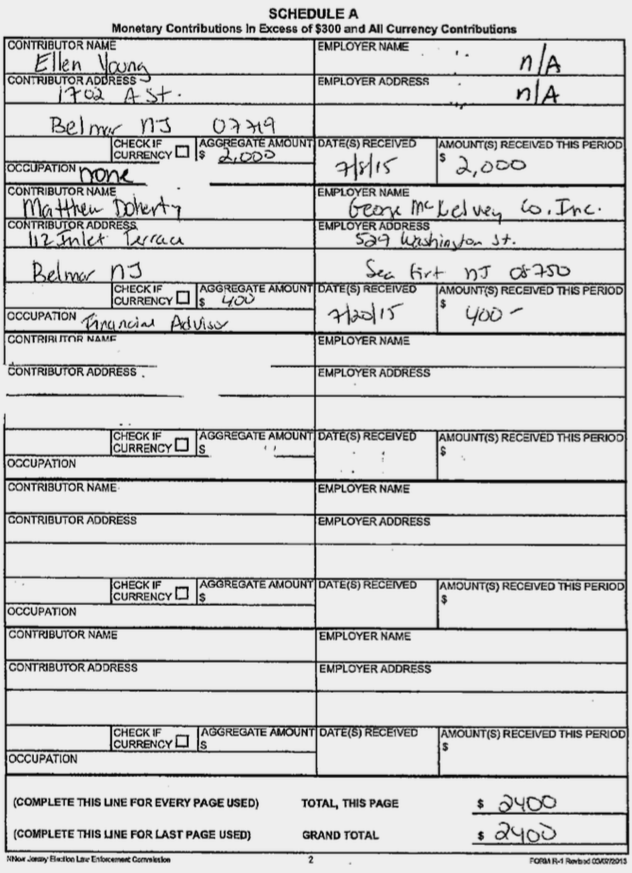 SCHEDULE A
Monetary Contributions In Excess of $300 and All Currency Contributions
CONTRIBUTOR NAME EMPLOYER NAME
Ellen Young n/A
CONTRIBUTOR ADDRESS EMPLOYER ADDRESS
1702 A St. n/A
Belmar NJ 07719
CHECK IF CURRENCY AGGREGATE AMOUNT DATE(S) RECEIVED AMOUNT(S) RECEIVED THIS PERIOD
$ 2,000 7/8/15 $ 2,000
OCCUPATION none
CONTRIBUTOR NAME EMPLOYER NAME
Matthew Doherty George McKelvey Co. Inc.
CONTRIBUTOR ADDRESS EMPLOYER ADDRESS
112 Inlet Terrace 529 Washington St.
Belmar NJ Sea Girt NJ 08750
CHECK IF CURRENCY AGGREGATE AMOUNT DATE(S) RECEIVED AMOUNT(S) RECEIVED THIS PERIOD
$ 400 7/20/15 $ 400-
OCCUPATION Financial Advisor
CONTRIBUTOR NAME EMPLOYER NAME
CONTRIBUTOR ADDRESS EMPLOYER ADDRESS
CHECK IF CURRENCY AGGREGATE AMOUNT DATE(S) RECEIVED AMOUNT(S) RECEIVED THIS PERIOD
$ $
OCCUPATION
CONTRIBUTOR NAME EMPLOYER NAME
CONTRIBUTOR ADDRESS EMPLOYER ADDRESS
CHECK IF CURRENCY AGGREGATE AMOUNT DATE(S) RECEIVED AMOUNT(S) RECEIVED THIS PERIOD
$ $
OCCUPATION
CONTRIBUTOR NAME EMPLOYER NAME
CONTRIBUTOR ADDRESS EMPLOYER ADDRESS
CHECK IF CURRENCY AGGREGATE AMOUNT DATE(S) RECEIVED AMOUNT(S) RECEIVED THIS PERIOD
$ $
OCCUPATION
(COMPLETE THIS LINE FOR EVERY PAGE USED) TOTAL, THIS PAGE $ 2400
(COMPLETE THIS LINE FOR LAST PAGE USED) GRAND TOTAL $ 2400
New Jersey Election Law Enforcement Commission 2 FORM R-1 Revised 03/07/2013